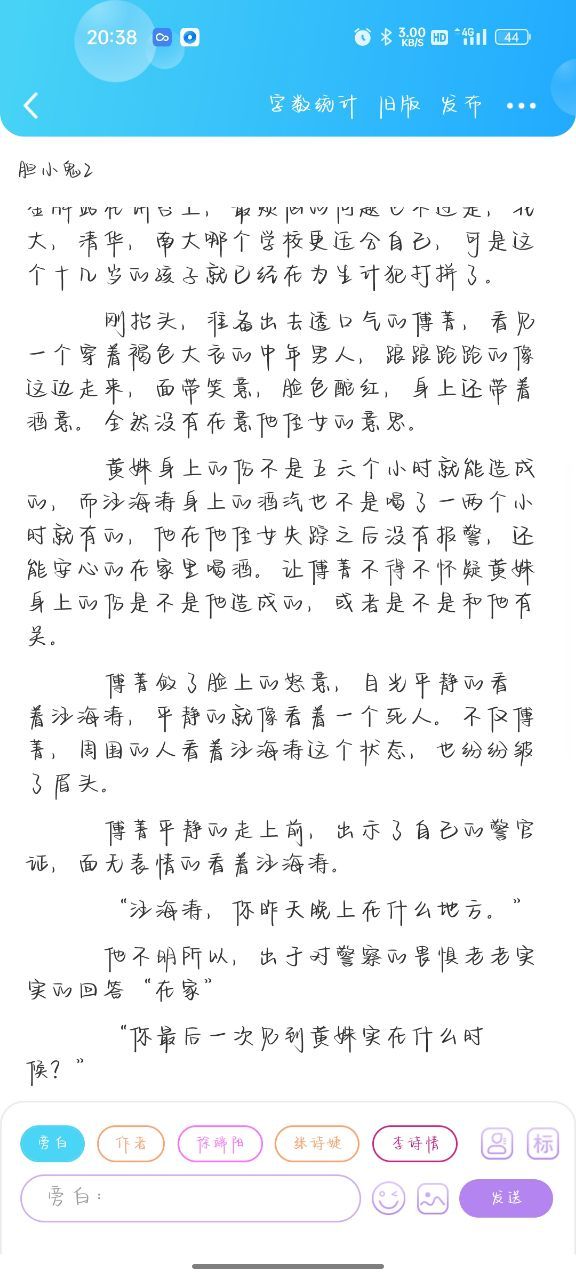 20:38
3.00
KB/S
HD
4G
44
字数统计 旧版 发布
胆小鬼2
大，清华，南大哪个学校更适合自己，可是这
个十几岁的孩子就已经在为生计犯打拼了。
刚抬头，准备出去透口气的傅菁，看见
一个穿着褐色大衣的中年男人，踉踉跄跄的像
这边走来，面带笑意，脸色酡红，身上还带着
酒意。全然没有在意他侄女的意思。
黄姝身上的伤不是五六个小时就能造成
的，而沙海涛身上的酒汽也不是喝了一两个小
时就有的，他在他侄女失踪之后没有报警，还
能安心的在家里喝酒。让傅菁不得不怀疑黄姝
身上的伤是不是他造成的，或者是不是和他有
关。
傅菁敛了脸上的怒意，目光平静的看
着沙海涛，平静的就像看着一个死人。不仅傅
菁，周围的人看着沙海涛这个状态，也纷纷皱
了眉头。
傅菁平静的走上前，出示了自己的警官
证，面无表情的看着沙海涛。
“沙海涛，你昨天晚上在什么地方。”
他不明所以，出于对警察的畏惧老老实
实的回答“在家”
“你最后一次见到黄姝实在什么时
候？”
旁白 作者 徐端阳 张诗婕 李诗情 标
旁白： 发送